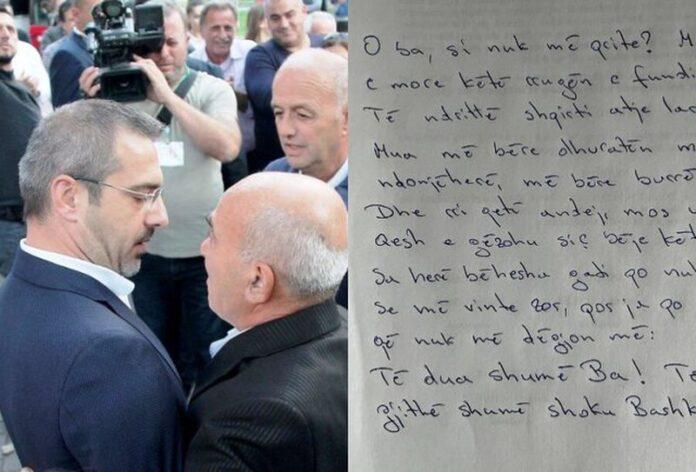 O ba, si nuk më prite?
e more këtë rrugën e fundi
Të ndrittë shpirti atje la
Mua më bëre dhuratën m
ndonjëherë, më bëre burrë
Dhe rri qetë andej, mos
Qesh e gëzohu siç bëje kët
Sa herë bëhesha gadi po nuk
Se më vinte zor, por ja po
që nuk më dëgjon më:
Të dua shumë Ba! Të
gjithë shumë shoku Bashk